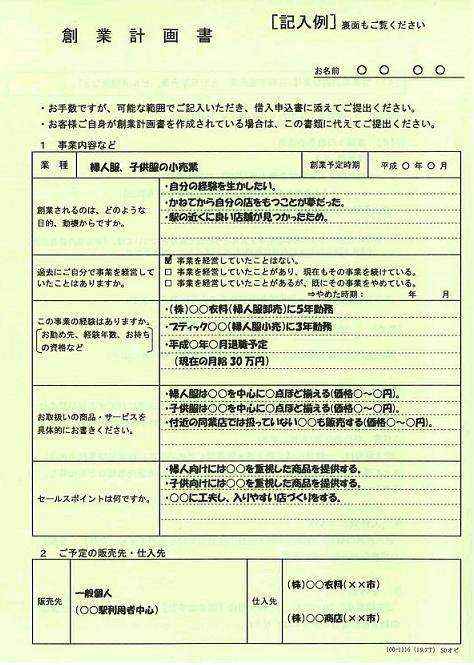 [記入例] 裏面もご覧ください
創業計画書
お名前 ○ ○ ○ ○
・お手数ですが、可能な範囲でご記入いただき、借入申込書に添えてご提出ください。
・お客様ご自身が創業計画書を作成されている場合は、この書類に代えてご提出ください。
1 事業内容など
業 種 婦人服、子供服の小売業 創業予定時期 平成 ○ 年 ○ 月
創業されるのは、どのような
目的、動機からですか。
・自分の経験を生かしたい。
・かねてから自分の店をもつことが夢だった。
・駅の近くに良い店舗が見つかったため。
過去にご自分で事業を経営して
いたことはありますか。
☑ 事業を経営していたことはない。
□ 事業を経営していたことがあり、現在もその事業を続けている。
□ 事業を経営していたことがあるが、既にその事業をやめている。
⇒やめた時期： 年 月
この事業の経験はありますか。
お勤め先、経験年数、お持ち
の資格など
・(株)○○衣料(婦人服卸売)に5年勤務
・ブティック○○(婦人服小売)に3年勤務
・平成○年○月退職予定
(現在の月給 30 万円)
お取扱いの商品・サービスを
具体的にお書きください。
・婦人服は○○を中心に○点ほど揃える(価格○～○円)。
・子供服は○○を中心に○点ほど揃える(価格○～○円)。
・付近の同業店では扱っていない○○も販売する(価格○～○円)。
セールスポイントは何ですか。
・婦人向けには○○を重視した商品を提供する。
・子供向けには○○を重視した商品を提供する。
・○○に工夫し、入りやすい店づくりをする。
2 ご予定の販売先・仕入先
販売先
一般個人
(○○駅利用者中心)
仕入先
(株)○○衣料(××市)
(株)○○商店(××市)
100-1116 (19.7T) 50オビ